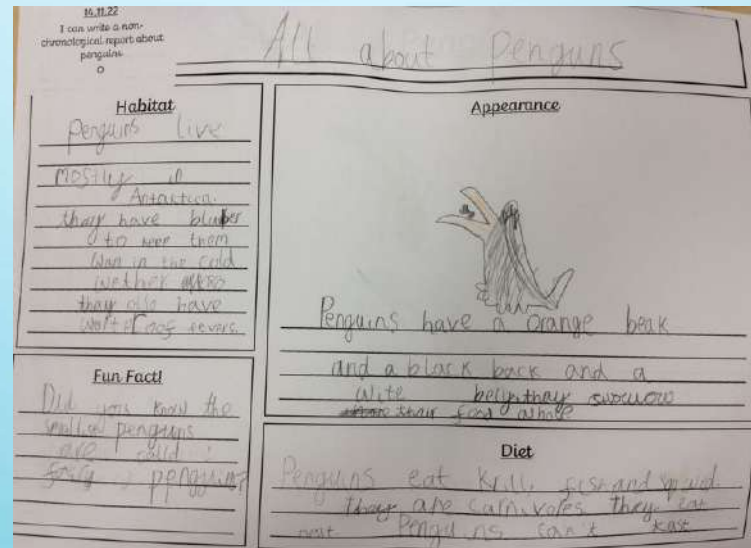 14.11.22
I can write a non-
chronological report about
penguins
All about Penguns
Habitat
Penguins live
mostly in
Antartica.
thay have bluber
to keep them
wan in the cold
wether
thay also have
Fun Fact!
Did you know the
smallest penguns
are calld
Appearance
Penguins have a orange beak
and a black back and a
wite bely. thay swowow
thair food whole
Diet
Penguins eat krill, fish and sqwid.
They are carnivores they eat
meat. Penguins can't tast